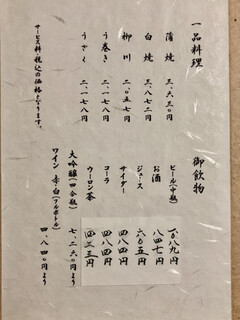 一品料理
蒲焼 三、六三〇円
白焼 三、八七二円
柳川 二、〇五七円
う巻き 二、一七八円
うざく 二、一七八円
サービス料税込の価格となります。
御飲物
ビール(中瓶) 一、〇八九円
お酒 八四七円
ジュース 六〇五円
サイダー 四八四円
コーラ 四八四円
ウーロン茶 四二三円
大吟醸(四合瓶) 七、二六〇円より
ワイン 赤・白(フルボトル) 四、八四〇円より